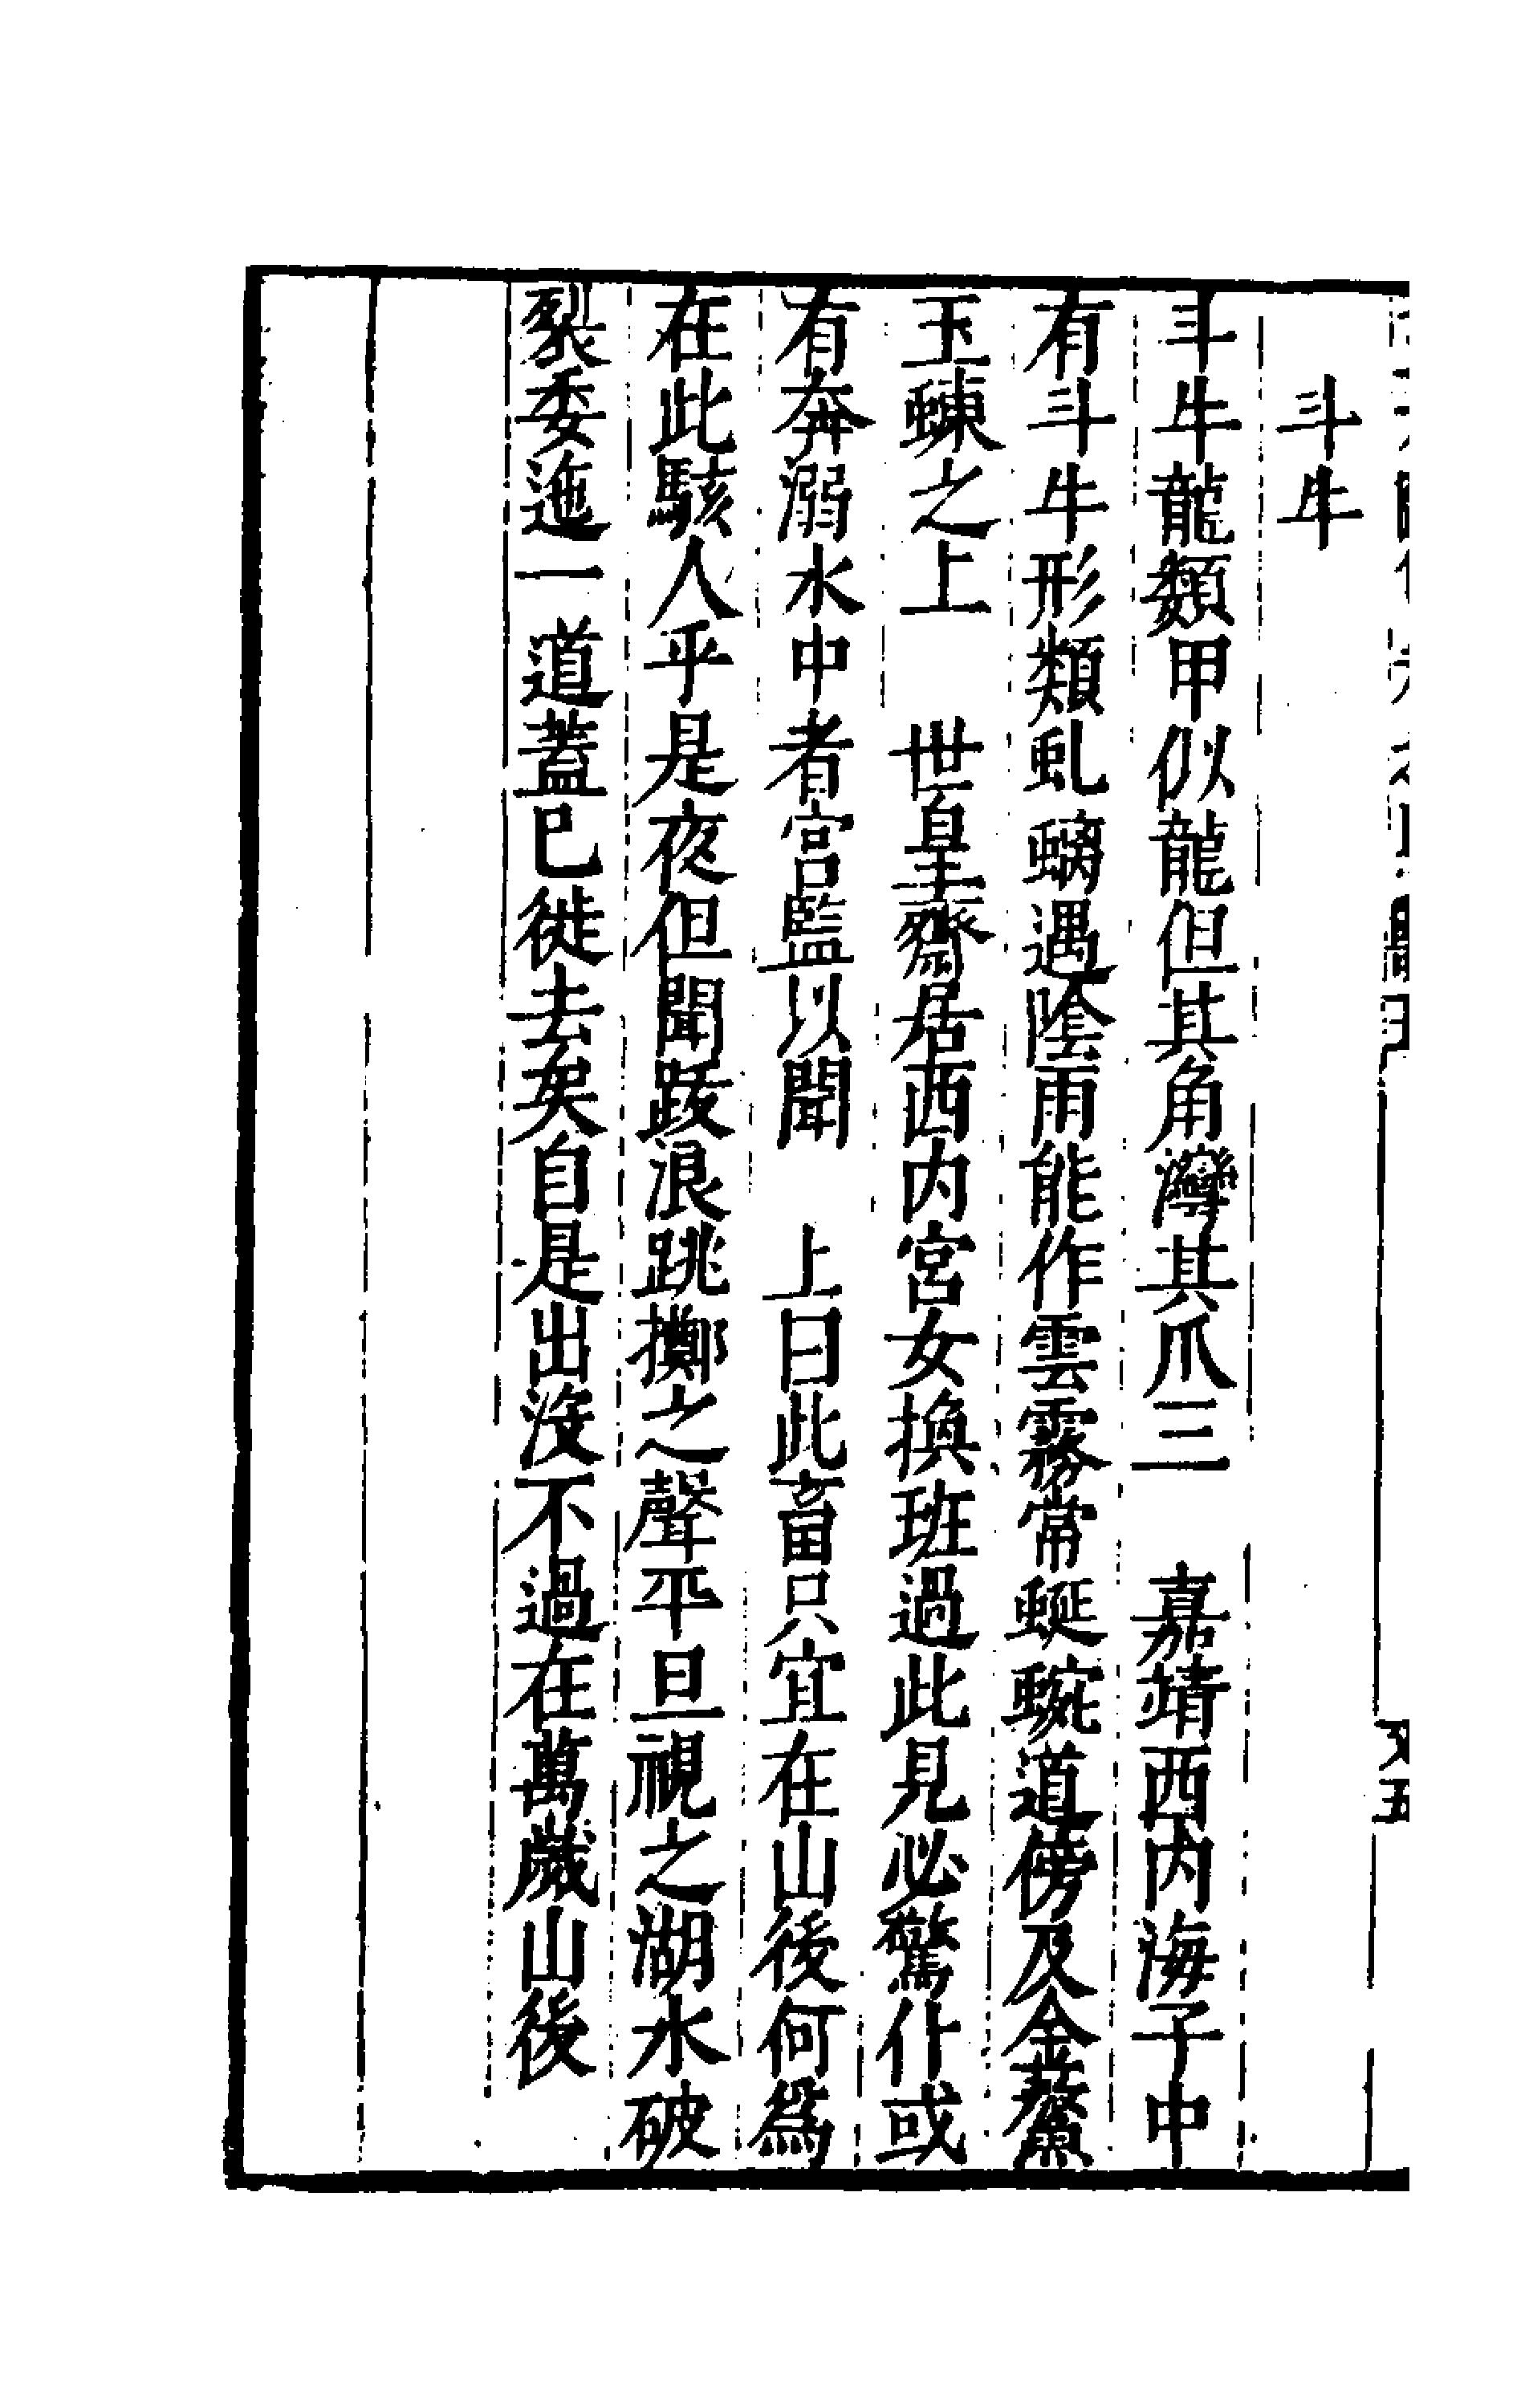 斗牛
斗牛龍類甲似龍但其角灣其爪三　嘉靖西内海子中
有斗牛形類虬螭遇陰雨能作雲霧常蜒蜿道傍及金鰲
玉蝀之上　世皇齋居西内宮女換班過此見必驚仆或
有奔溺水中者宮監以聞　上曰此畜只宜在山後何爲
在此駭人乎是夜但聞跋浪跳擲之聲平旦視之湖水破
裂委迤一道蓋已徙去矣自是出沒不過在萬歲山後